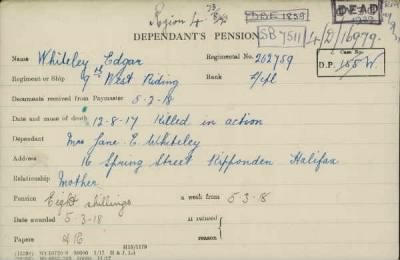 Region 4
DEAD
DBE 1859
DEPENDANT'S PENSION
SB 7511/4/D/16979.
Name Whiteley Edgar Regimental No. 202759
Case No.
Regiment or Ship 9th West Riding Rank L/Cpl
D.P. 155 W.
Documents received from Paymaster 5-2-18
Date and cause of death 12-8-17 Killed in action
Dependant Mrs Jane E. Whiteley
Address 16 Spring Street Ripponden Halifax
Relationship Mother
Pension Eight shillings a week from 5-3-18
Date awarded 5-3-18 as reduced
reason
Papers